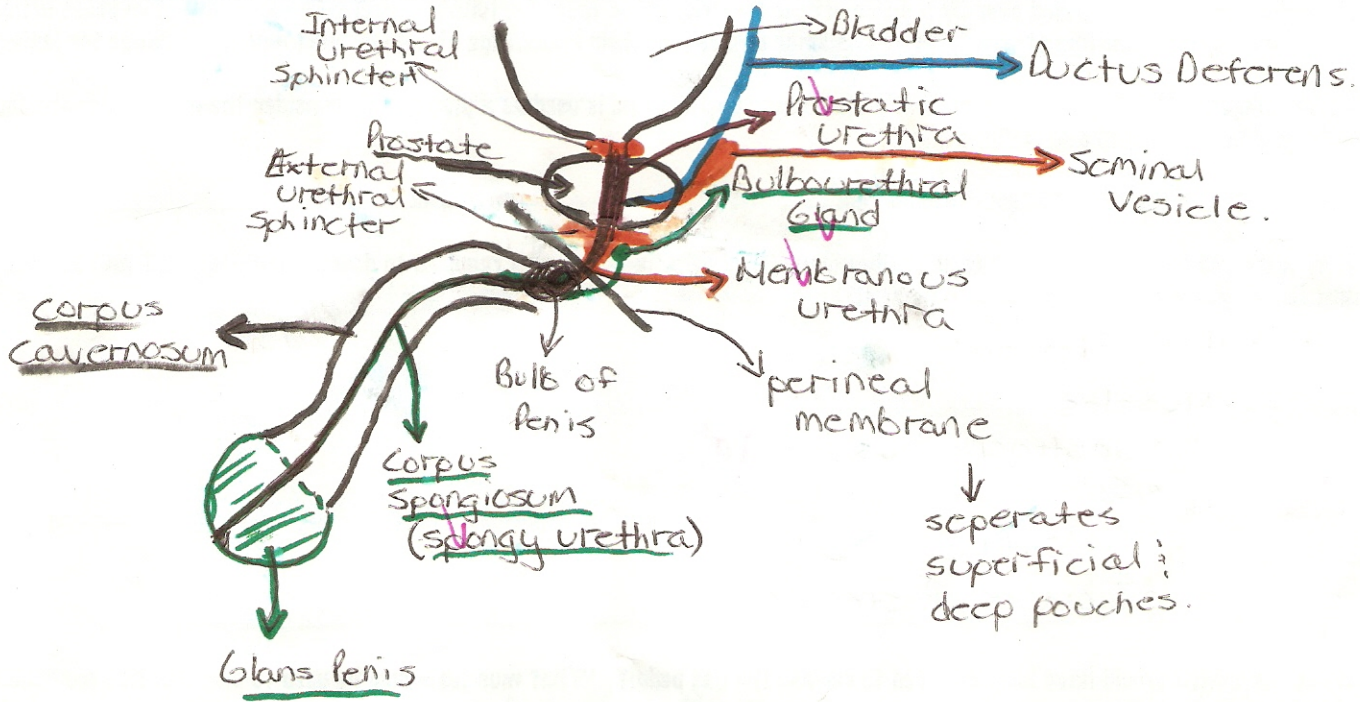 Internal
urethral
sphincter
Bladder
Ductus Deferens.
Prostatic
urethra
Prostate
External
urethral
sphincter
Seminal
vesicle.
Bulbourethral
Gland
Membranous
urethra
corpus
cavernosum
Bulb of
Penis
perineal
membrane
corpus
spongiosum
(spongy urethra)
seperates
superficial &
deep pouches.
Glans Penis